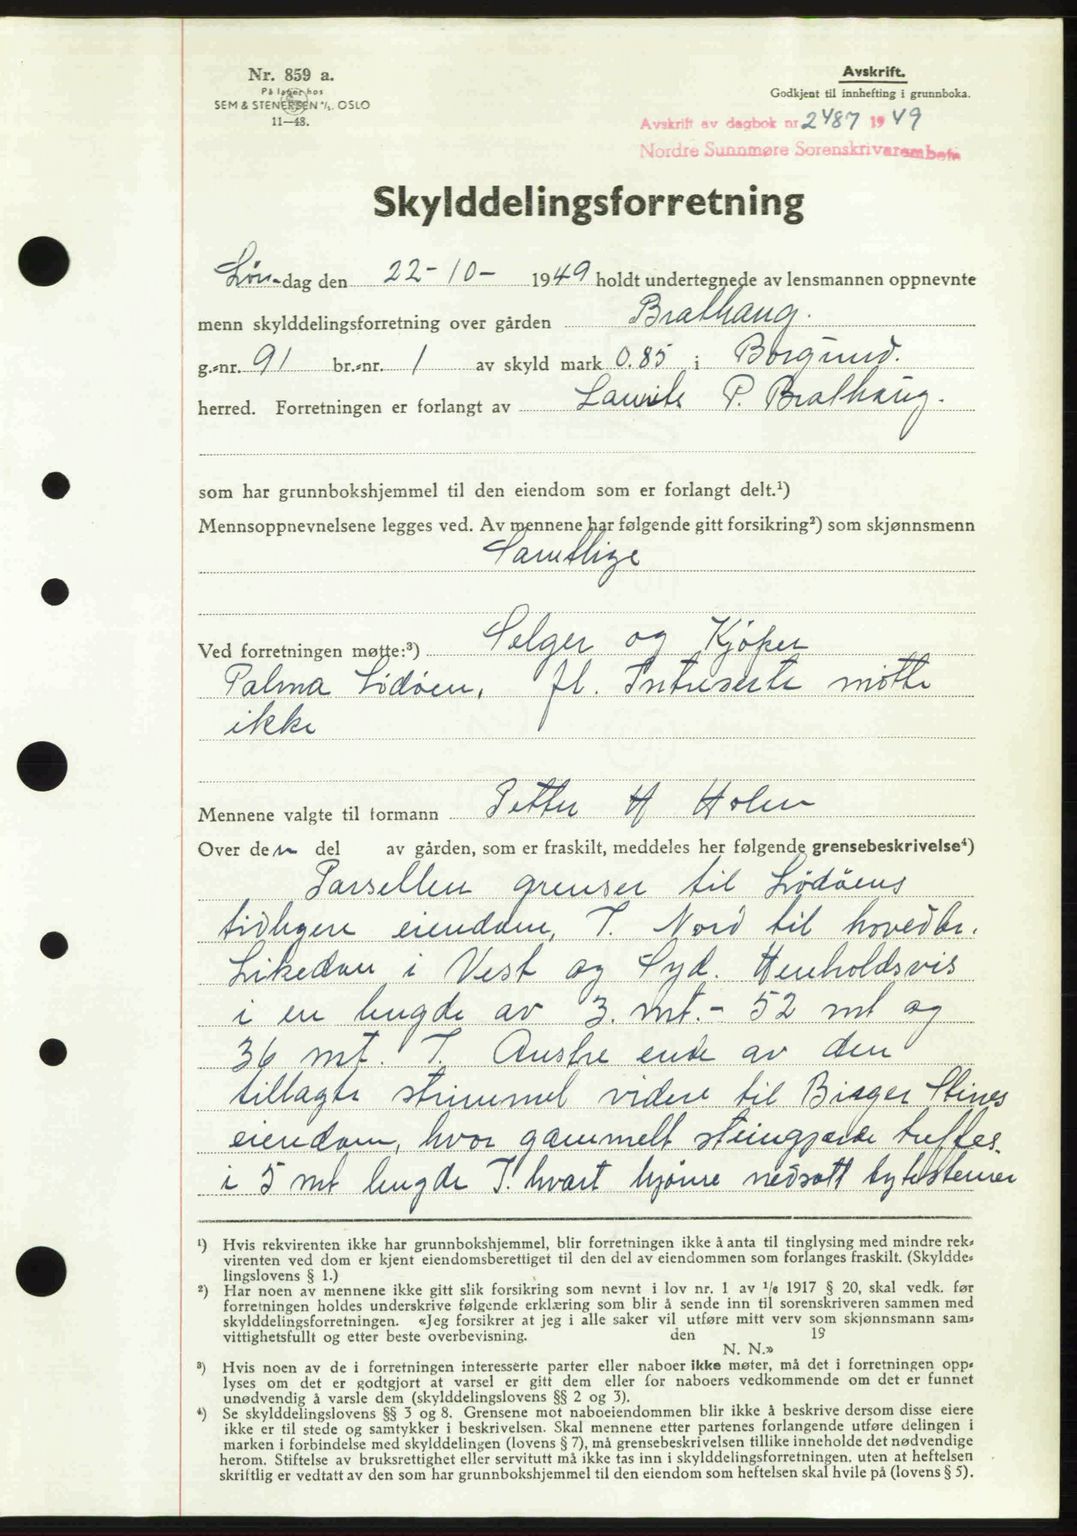 Nr. 859 a.
På lager hos
SEM & STENERSEN A/S. OSLO
11—48.
Avskrift.
Godkjent til innhefting i grunnboka.
Avskrift av dagbok nr 2487 1949
Nordre Sunnmøre Sorenskriverembete
Skylddelingsforretning
Lør-dag den 22-10- 1949 holdt undertegnede av lensmannen oppnevnte
menn skylddelingsforretning over gården Brathaug.
g.-nr. 91 br.-nr. 1 av skyld mark 0.85 i Borgund.
herred. Forretningen er forlangt av Laurits P. Brathaug.
som har grunnbokshjemmel til den eiendom som er forlangt delt.¹)
Mennsoppnevnelsene legges ved. Av mennene har følgende gitt forsikring²) som skjønnsmenn
Samtlige
Ved forretningen møtte:³) Selger og Kjöper
Palma Lödöen, fl. Intreserte mötte
ikke
Mennene valgte til formann Petter H Holen
Over den del av gården, som er fraskilt, meddeles her følgende grensebeskrivelse⁴)
Parsellen grenser til Lödöens
tidligere eiendom, I. Nord til hovedbr.
Likedan i Vest og Syd. Henholdsvis
i en lengde av 3. mt. - 52 mt og
36 mt. I. Austre ende av den
tillagte strimmel videre til Birger Stines
eiendom, hvor gammelt steingjerde treffes
i 5 mt lengde I. hvart hjörne nedsatt bytesteiner
¹) Hvis rekvirenten ikke har grunnbokshjemmel, blir forretningen ikke å anta til tinglysing med mindre rek-
virenten ved dom er kjent eiendomsberettiget til den del av eiendommen som forlanges fraskilt. (Skyldde-
lingslovens § 1.)
²) Har noen av mennene ikke gitt slik forsikring som nevnt i lov nr. 1 av 1/6 1917 § 20, skal vedk. før
forretningen holdes underskrive følgende erklæring som blir å sende inn til sorenskriveren sammen med
skylddelingsforretningen. «Jeg forsikrer at jeg i alle saker vil utføre mitt verv som skjønnsmann sam-
vittighetsfullt og etter beste overbevisning. den 19
N. N.»
³) Hvis noen av de i forretningen interesserte parter eller naboer ikke møter, må det i forretningen opp-
lyses om det er godtgjort at varsel er gitt dem eller for naboers vedkommende om det er funnet
unødvendig å varsle dem (skylddelingslovens §§ 2 og 3).
⁴) Se skylddelingslovens §§ 3 og 8. Grensene mot naboeiendommen blir ikke å beskrive dersom disse eiere
ikke er til stede og samtykker i beskrivelsen. Skal mennene etter partenes forlangende utføre delingen i
marken i forbindelse med skylddelingen (lovens § 7), må grensebeskrivelsen tillike inneholde det nødvendige
herom. Stiftelse av bruksrettighet eller servitutt må ikke tas inn i skylddelingsforretningen, uten at heftelsen
skriftlig er vedtatt av den som har grunnbokshjemmel til den eiendom som heftelsen skal hvile på (lovens § 5).